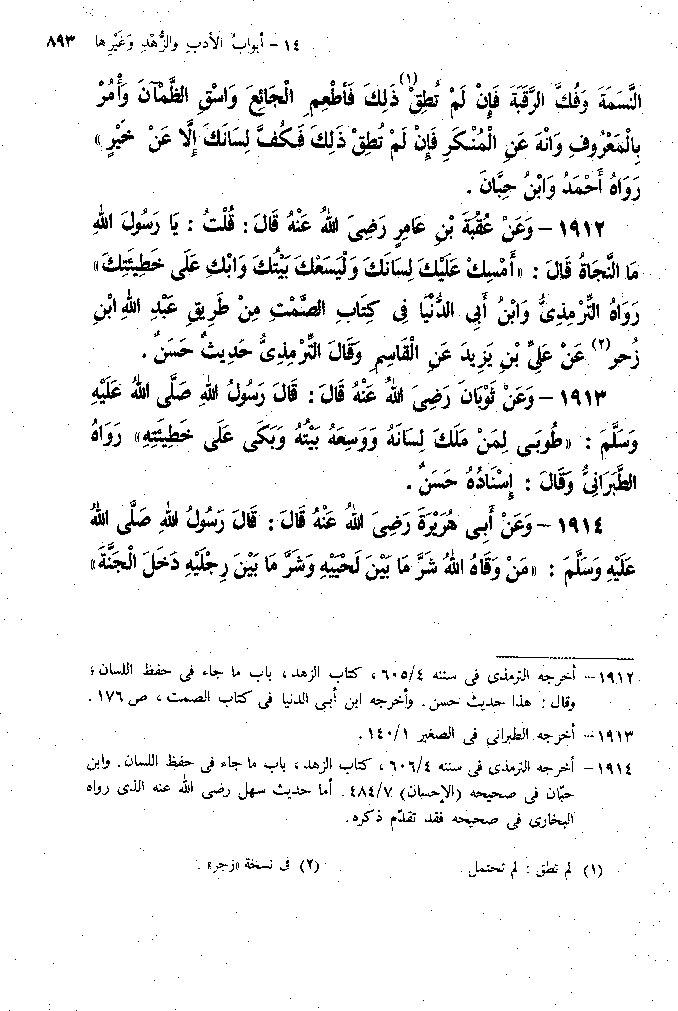 ١٤ - أبوابُ الأدبِ والزُّهْدِ وَغَيْرِها ٨٩٣
النَّسَمَةَ وَفُكَّ الرَّقَبَةَ فَإِنْ لَمْ تُطِقْ(١) ذَلِكَ فَأَطْعِمِ الْجَائِعَ وَاسْقِ الظَّمْآنَ وَأْمُرْ
بِالْمَعْرُوفِ وَانْهَ عَنِ الْمُنْكَرِ فَإِنْ لَمْ تُطِقْ ذَلِكَ فَكُفَّ لِسَانَكَ إِلَّا عَنْ خَيْرٍ»
رَوَاهُ أَحْمَدُ وَابْنُ حِبَّانَ .
١٩١٢ - وَعَنْ عُقْبَةَ بْنِ عَامِرٍ رَضِىَ اللهُ عَنْهُ قَالَ : قُلْتُ : يَا رَسُولَ اللهِ
مَا النَّجَاةُ قَالَ : «أَمْسِكْ عَلَيْكَ لِسَانَكَ وَلْيَسَعْكَ بَيْتُكَ وَابْكِ عَلَى خَطِيئَتِكَ»
رَوَاهُ التِّرْمِذِىُّ وَابْنُ أَبِي الدُّنْيَا فِى كِتَابِ الصَّمْتِ مِنْ طَرِيقِ عَبْدِ اللهِ ابْنِ
زُحر(٢) عَنْ عَلِىِّ بْنِ يَزِيدَ عَنِ الْقَاسِمِ وَقَالَ التِّرْمِذِىُّ حَدِيثٌ حَسَنٌ .
١٩١٣ - وَعَنْ ثَوْبَانَ رَضِىَ اللهُ عَنْهُ قَالَ : قَالَ رَسُولُ اللهِ صَلَّى اللهُ عَلَيْهِ
وَسَلَّمَ : «طُوبَى لِمَنْ مَلَكَ لِسَانَهُ وَوَسِعَهُ بَيْتُهُ وَبَكَى عَلَى خَطِيئَتِهِ» رَوَاهُ
الطَّبَرَانِىُّ وَقَالَ : إِسْنَادُهُ حَسَنٌ .
١٩١٤ - وَعَنْ أَبِى هُرَيْرَةَ رَضِىَ اللهُ عَنْهُ قَالَ : قَالَ رَسُولُ اللهِ صَلَّى اللهُ
عَلَيْهِ وَسَلَّمَ : «مَنْ وَقَاهُ اللهُ شَرَّ مَا بَيْنَ لَحْيَيْهِ وَشَرَّ مَا بَيْنَ رِجْلَيْهِ دَخَلَ الْجَنَّةَ»
١٩١٢ - أخرجه الترمذى فى سننه ٦٠٥/٤ ، كتاب الزهد ، باب ما جاء فى حفظ اللسان ؛
وقال : هذا حديث حسن . وأخرجه ابن أبى الدنيا فى كتاب الصمت ، ص ١٧٦ .
١٩١٣ - أخرجه الطبرانى فى الصغير ١٤٠/١ .
١٩١٤ - أخرجه الترمذى فى سننه ٦٠٦/٤ ، كتاب الزهد ، باب ما جاء فى حفظ اللسان . وابن
حبّان فى صحيحه (الإحسان) ٤٨٤/٧ . أما حديث سهل رضى الله عنه الذى رواه
البخارى فى صحيحه فقد تقدّم ذكره .
(١) لم تطق : لم تحتمل . (٢) فى نسخة «زجر» .